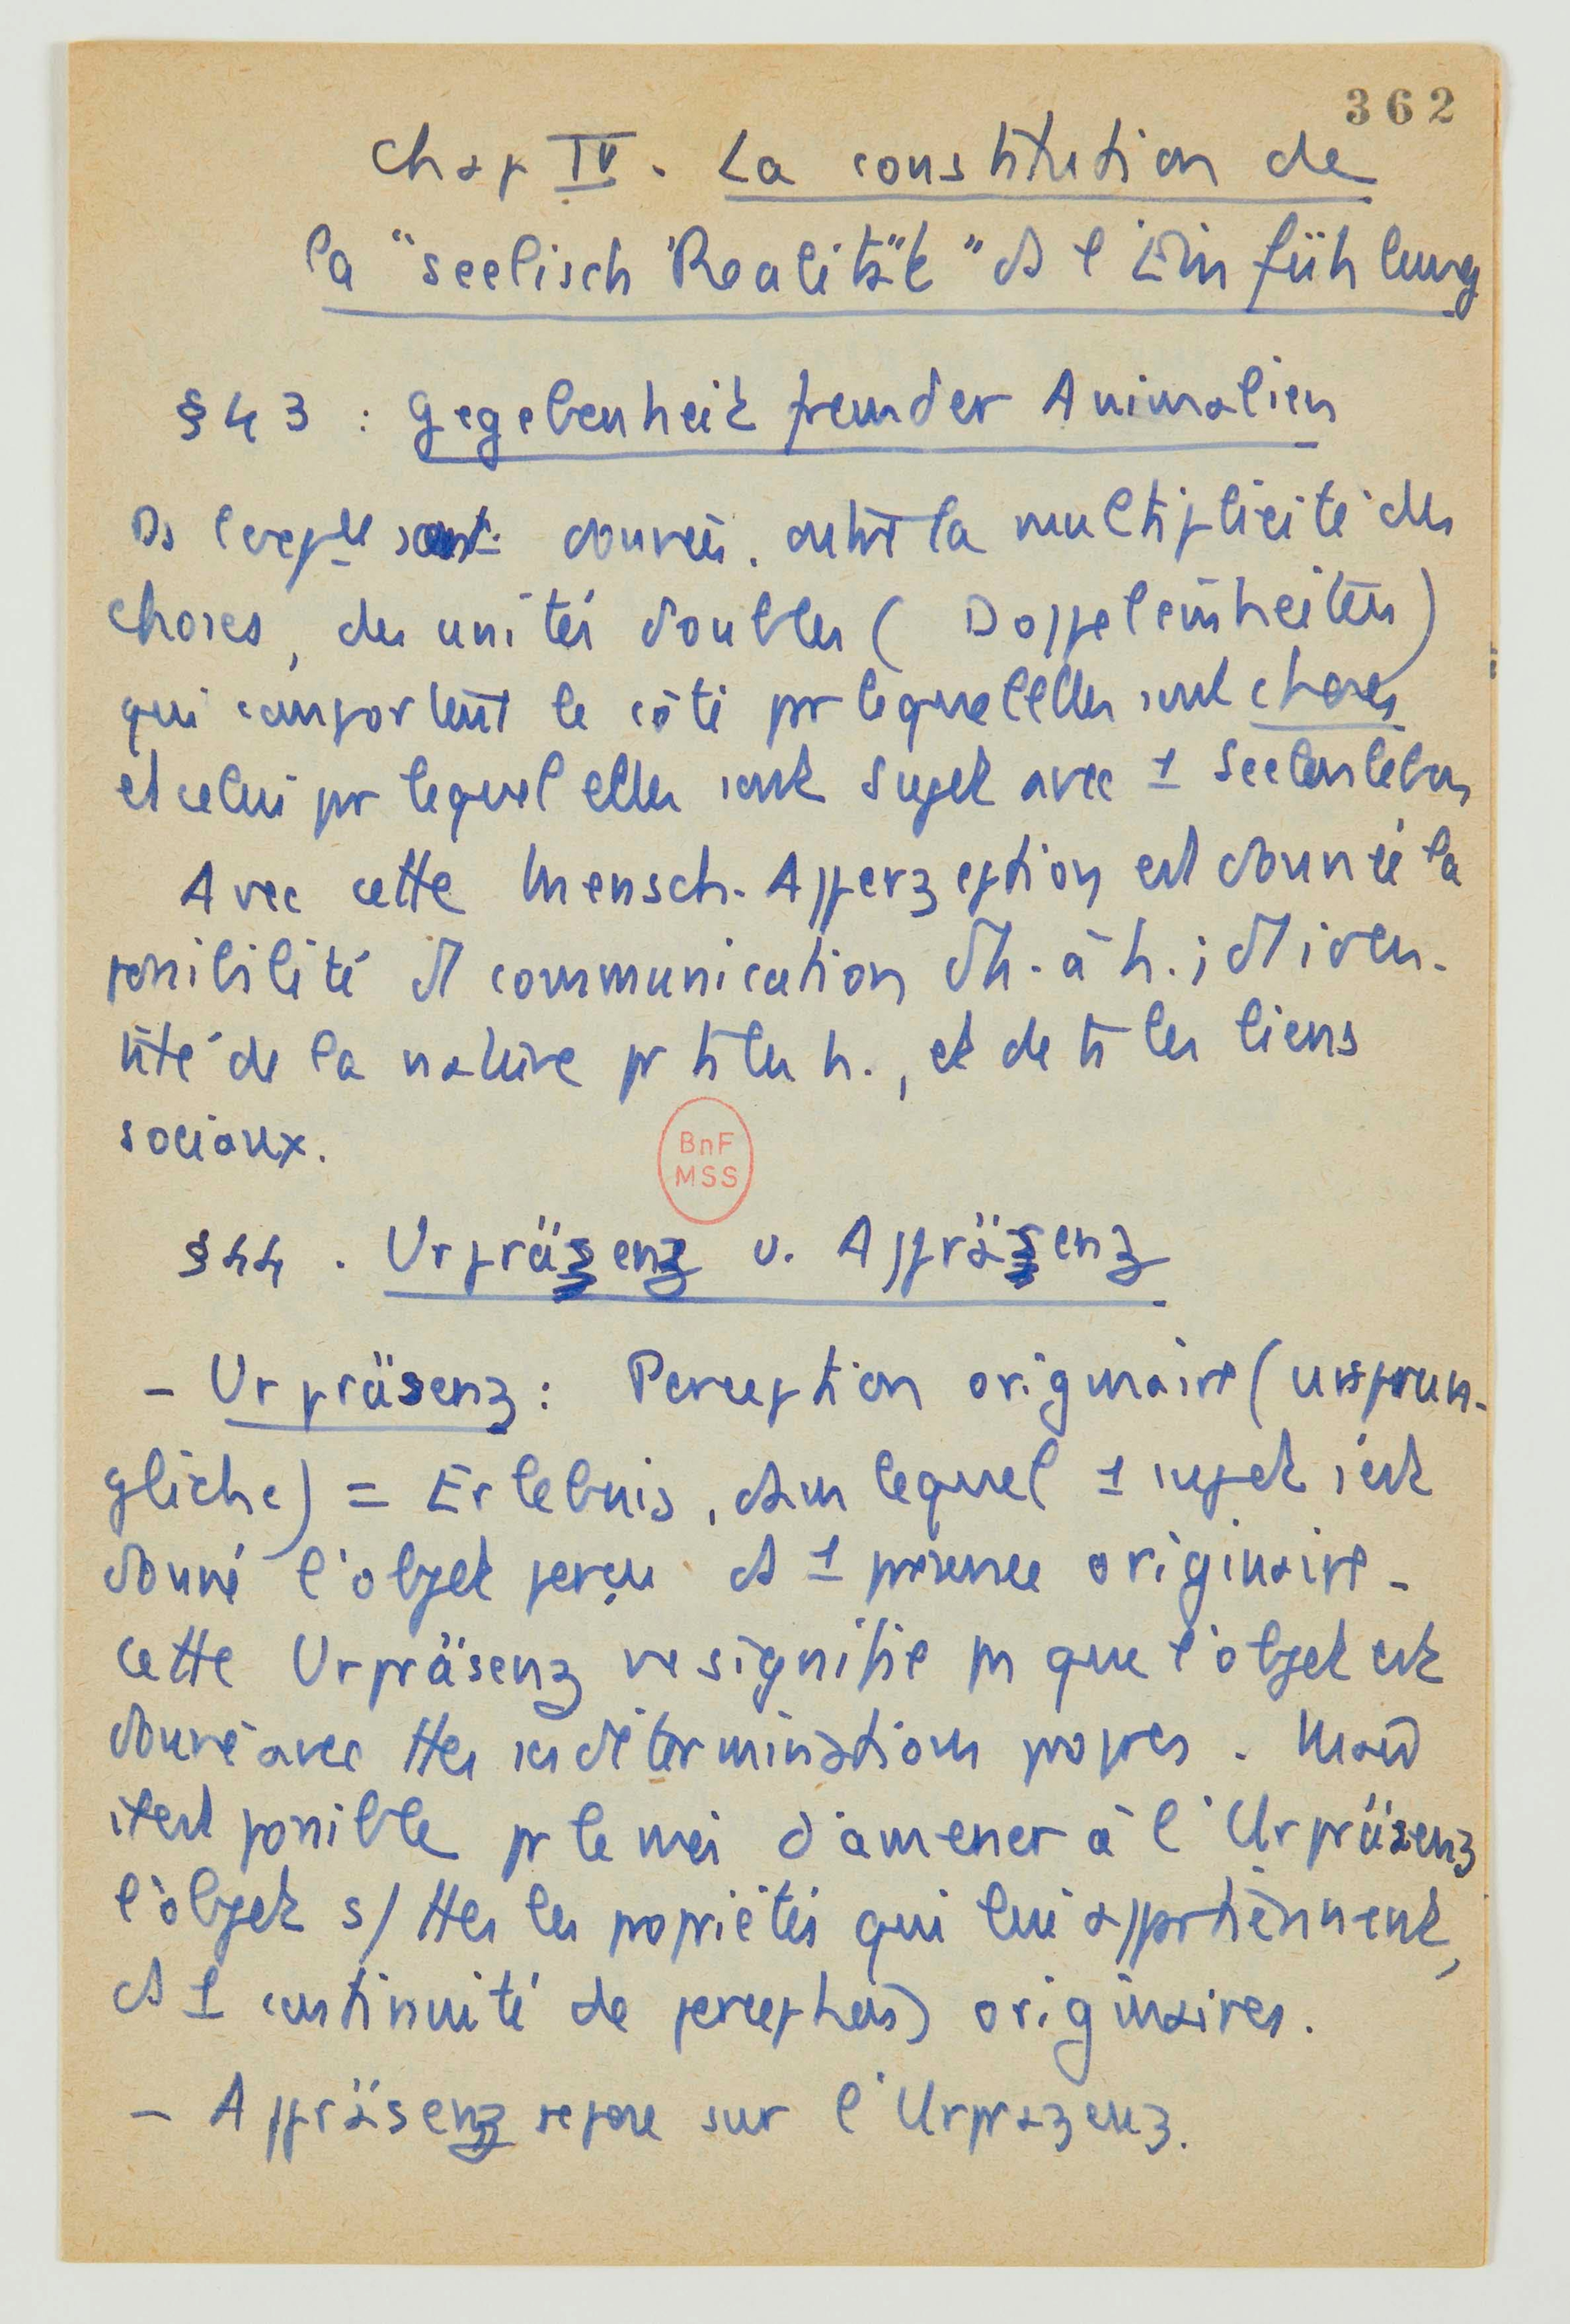 362
Chap IV. La constitution de
la "seelisch Realität" ds l'Einfühlung
§ 43 : Gegebenheit fremder Animalien
Ds l'exp^ce sont données. outre la multiplicité des
choses, des unités doubles (Doppeleinheiten)
qui comportent le côté par lequel elles sont choses
et celui par lequel elles sont sujet avec 1 Seelenleben
Avec cette Mensch-Apperzeption est donnée la
possibilité d communication d'h. à h. ; d'iden-
tité de la nature pr ts les h., et de ts les liens
sociaux.
BnF
MSS
§ 44 . Urpräsenz u. Appräsenz
– Urpräsenz : Perception originaire (ursprün-
gliche) = Erlebnis, dans lequel 1 sujet s'est
donné l'objet perçu ds 1 présence originaire.
Cette Urpräsenz ne signifie pas que l'objet est
donné avec ttes ses déterminations propres. Mais
il est possible pr le moi d'amener à l'Urpräsenz
l'objet s/ ttes les propriétés qui lui appartiennent,
ds 1 continuité de perceptions originaires.
– Appräsenz repose sur l'Urprazenz.